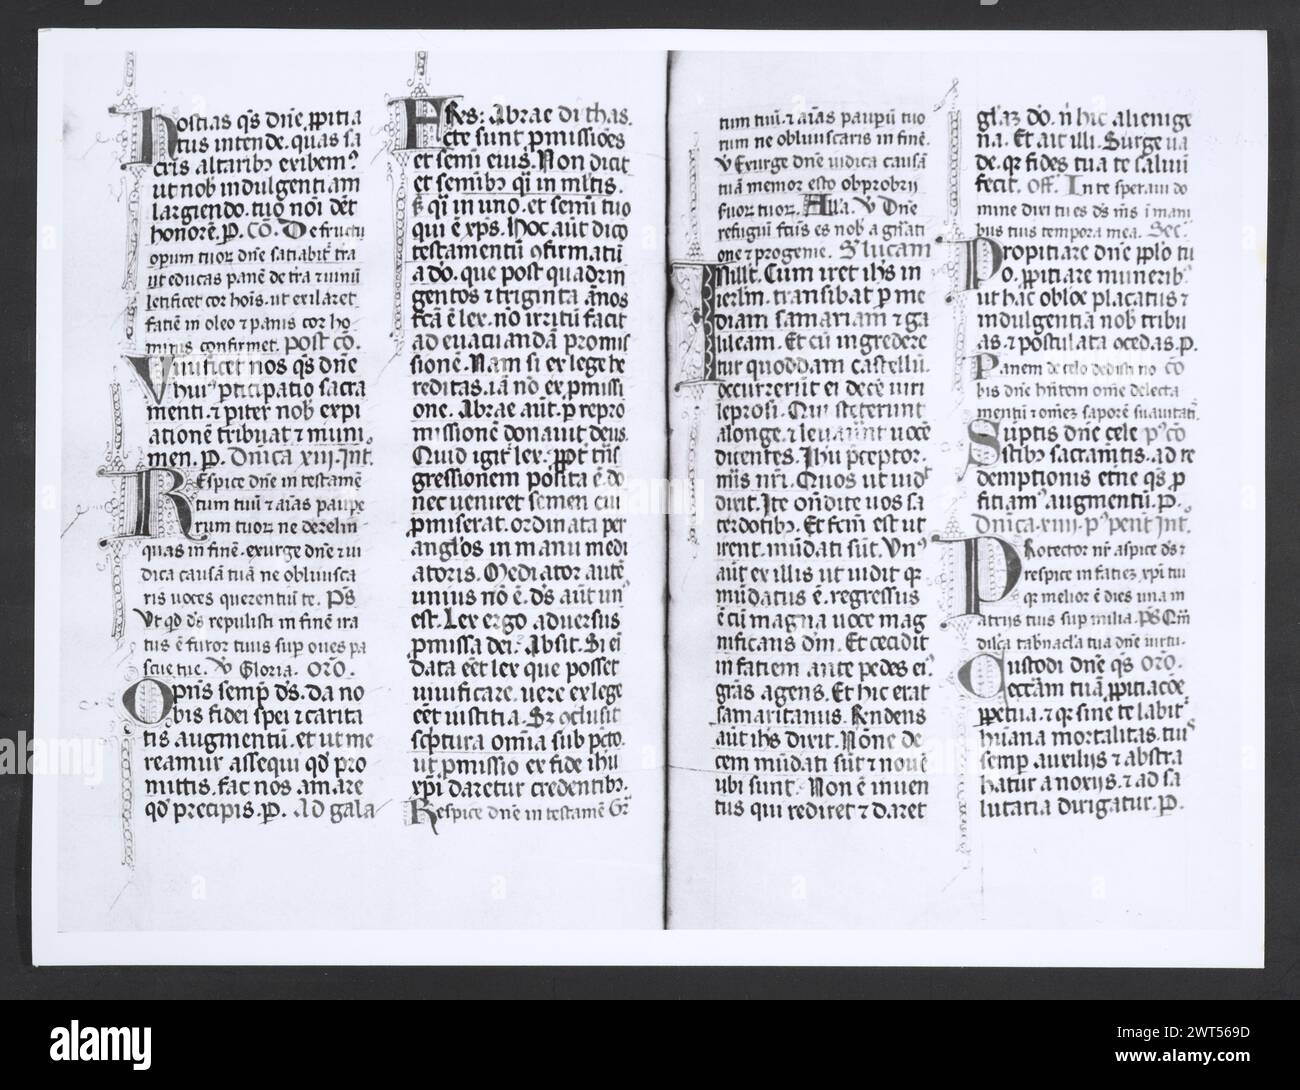 hostias qs dne ppitia
tus intende. quas sa
cris altarib exibem9
ut nob indulgentiam
largiendo. tuo noi det
honore. P. Co. De fructu
opum tuoz dne satiabit tra
ut educas pane de tra & uinu
letificet cor hois. ut exilaret
facie in oleo & panis cor ho
minis confirmet. post co.
Viuificet nos qs dne
hui9 pticipatio sacra
menti. & piter nob expi
atione tribuat & muni
men. P. Dnica xiii. Int.
Respice dne in testame
tum tuu & aias paupe
rum tuoz ne derelin
quas in fine. exurge dne & iui
dica causa tua ne obliuisca
ris uoces querentiu te. Ps
Vt qd ds repulisti in fine ira
tus e furor tuus sup oues pa
scue tue. V Gloria. Oro.
Opns semp ds. da no
bis fidei spei & carita
tis augmentu. et ut me
reamur assequi qd pro
mittis. fac nos amare
qd precipis. P. Ad gala
FRes: Abrae dicthas.
cte sunt pmissioes
et semi eius. Non dicit
et semib qi in mltis.
s qi in uno. et semi tuo
qui e xps. Hoc aut dico
testamentu ofirmatu
a do. que post quadrin
gentos & triginta anos
fca e lex. no irritu facit
ad euacuanda promis
sione. Nam si ex lege he
reditas. ia no ex pmissi
one. Abrae aut p repro
missione donauit deus.
Quid igit lex. ppt tns
gressionem posita e. do
nec ueniret semen cui
pmiserat. ordinata per
anglos in manu medi
atoris. Mediator aute
unius no e. ds aut un9
est. Lex ergo aduersus
pmissa dei? Absit. Si ei
data eet lex que posset
uiuificare. uere ex lege
eet iustitia. Sz oclusit
scptura omia sub pcto.
ut pmissio ex fide ihu
xpi daretur credentib.
Respice dne in testame Gr
tum tuu. & aias paupu tuo
rum ne obliuiscaris in fine.
V Exurge dne iudica causa
tua memor esto obprobrij
suoz tuoz. Alla. V Dne
refugiu fcus es nob a gnati
one & progenie. S lucam
Illt. Cum iret ihs in
ierlm. transibat p me
diam samariam & ga
lileam. Et cu ingredere
tur quoddam castellu.
occurrerut ei dece uiri
leprosi. Qui steterunt
alonge. & leuauut uoce
dicentes. Ihu pceptor.
mis nri. Quos ut uidt
dixit. Ite ondite uos sa
cerdotib. Et fcm est ut
irent. mudati sut. Vn9
aut ex illis ut uidit qz
mudatus e. regressus
e cu magna uoce mag
nificans dm. Et cecidit
in faciem ante pedes ei9
gras agens. Et hic erat
samaritanus. Rndens
aut ihs dixit. None de
cem mudati sut & noue
ubi sunt. Non e inuen
tus qui rediret & daret
glaz do. n hic alienige
na. Et ait illi. Surge ua
de. qz fides tua te saluu
fecit. Off. In te speraui do
mine dixi tu es ds ms i mani
bus tuis tempora mea. Sec.
Propitiare dne pplo tu
o. ppitiare munerib.
ut hac obloe placatus &
indulgentia nob tribu
as. & postulata ocedas. P.
Panem de celo dedisti no Co
bis dne hntem ome delecta
mentu & omez sapore suauitat.
Suptis dne cele pco
stib sacramtis. ad re
demptionis etne qs p
ficiam9 augmentu. P.
Dnica xiiii. p9 pent Int.
Protector nr aspice ds &
respice in faciez xpi tui
qz melior e dies una in
atriis tuis sup milia. Ps Qm
dilca tabnacla tua dne uirtu
Custodi dne qs Oro.
eccam tua ppitiacoe
ppetua. & qz sine te labit
huana mortalitas. tuis
semp auxiliis & abstra
hatur a noxijs. & ad sa
lutaria dirigatur. P.
alamy
www.alamy.com
Image ID: 2WT569D